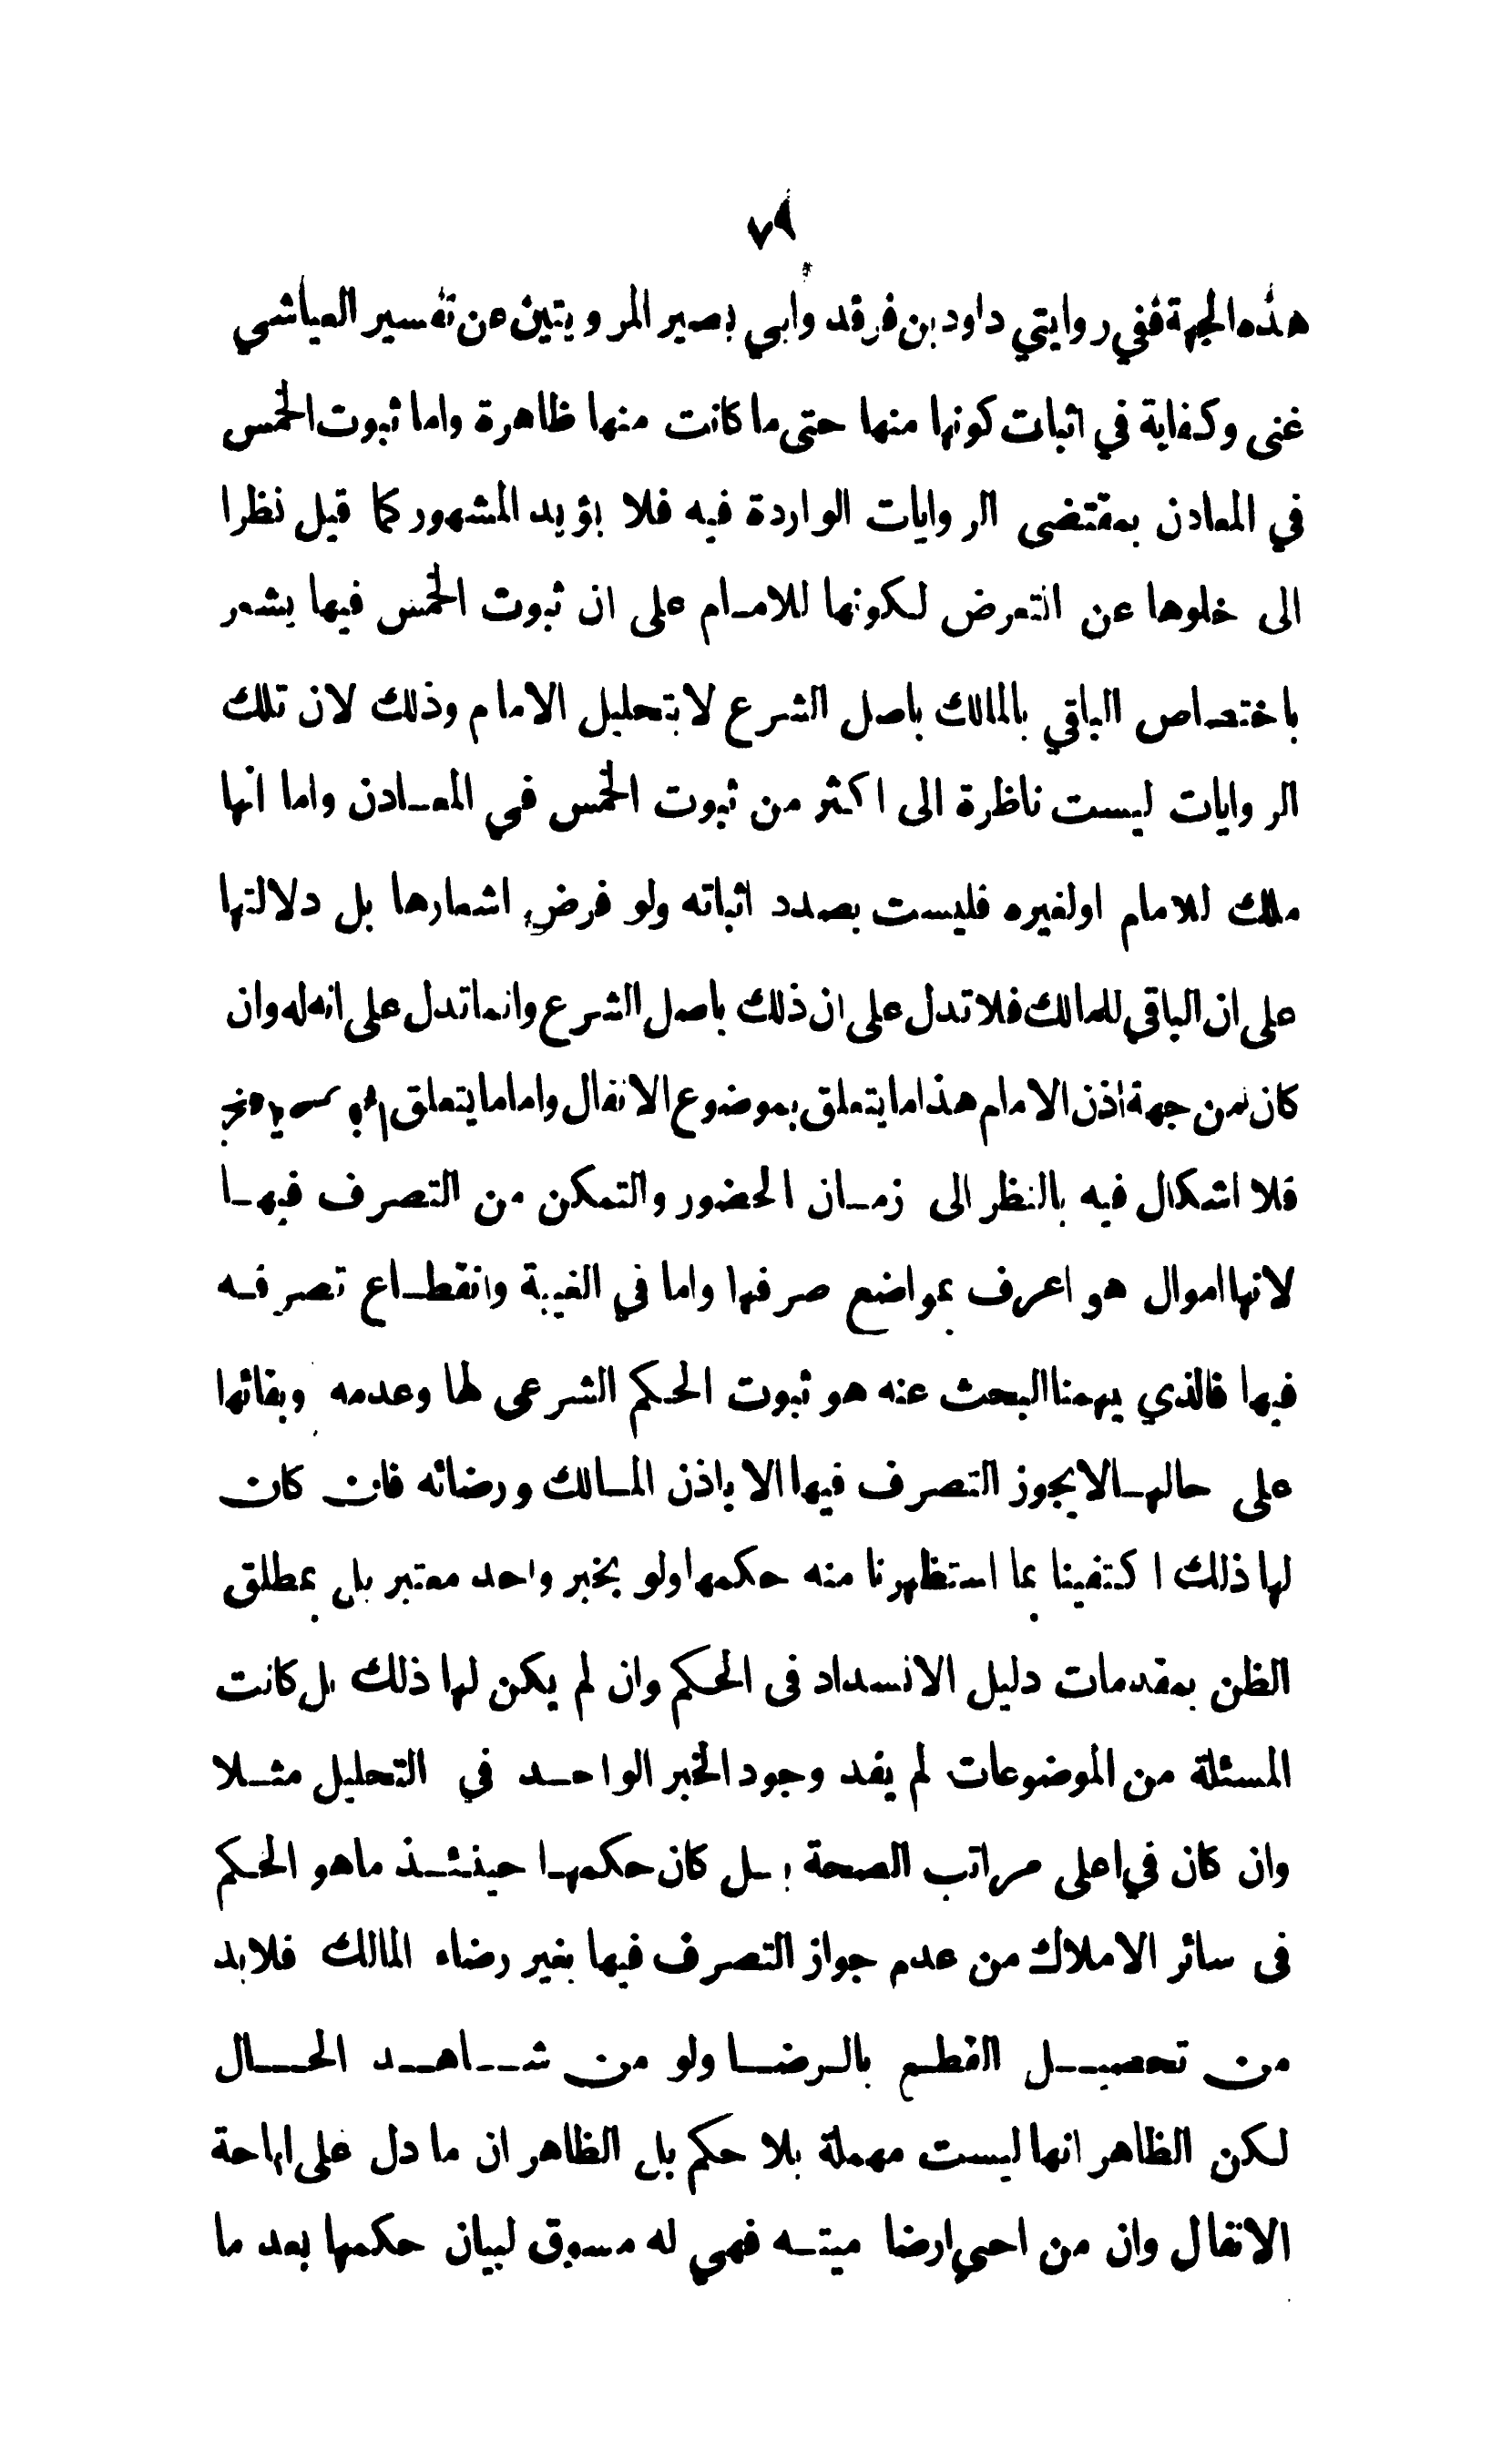 ٧٩
هذه الجهة ففي روايتي داود بن فرقد وابي بصير المرويتين عن تفسير العياشي
غنى وكفاية في اثبات كونها منها حتى ما كانت منها ظاهرة واما ثبوت الخمس
في المعادن بمقتضى الروايات الواردة فيه فلا يؤيد المشهور كما قيل نظرا
الى خلوها عن التعرض لكونها للامام على ان ثبوت الخمس فيها يشعر
باختصاص الباقي بالمالك باصل الشرع لا بتحليل الامام وذلك لان تلك
الروايات ليست ناظرة الى اكثر من ثبوت الخمس في المعادن واما انها
ملك للامام او لغيره فليست بصدد اثباته ولو فرض اشعارها بل دلالتها
على ان الباقي للمالك فلا تدل على ان ذلك باصل الشرع وانما تدل على انه له وان
كان من جهة اذن الامام هذا ما يتعلق بموضوع الانفال واما ما يتعلق
فلا اشكال فيه بالنظر الى زمان الحضور والتمكن من التصرف فيها
لانها اموال هو اعرف بمواضع صرفها واما في الغيبة وانقطاع تصرفه
فيها فالذي يهمنا البحث عنه هو ثبوت الحكم الشرعى لها وعدمه وبقائها
على حالها لا يجوز التصرف فيها الا باذن المالك ورضائه فان كان
لها ذلك اكتفينا بما استظهرنا منه حكمها ولو بخبر واحد معتبر بل بمطلق
الظن بمقدمات دليل الانسداد فى الحكم وان لم يكن لها ذلك بل كانت
المسئلة من الموضوعات لم يفد وجود الخبر الواحد في التحليل مثلا
وان كان في اعلى مراتب الصحة بل كان حكمها حينئذ ما هو الحكم
فى سائر الاملاك من عدم جواز التصرف فيها بغير رضاء المالك فلابد
من تحصيل القطع بالرضا ولو من شاهد الحال
لكن الظاهر انها ليست مهملة بلا حكم بل الظاهر ان ما دل على اباحة
الانفال وان من احي ارضا ميته فهي له مسوق لبيان حكمها بعد ما